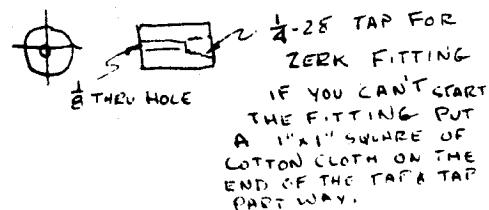 1/4-28 TAP FOR
ZERK FITTING
1/8 THRU HOLE
IF YOU CAN'T START
THE FITTING PUT
A 1"x1" SQUARE OF
COTTON CLOTH ON THE
END OF THE TAP & TAP
PART WAY.